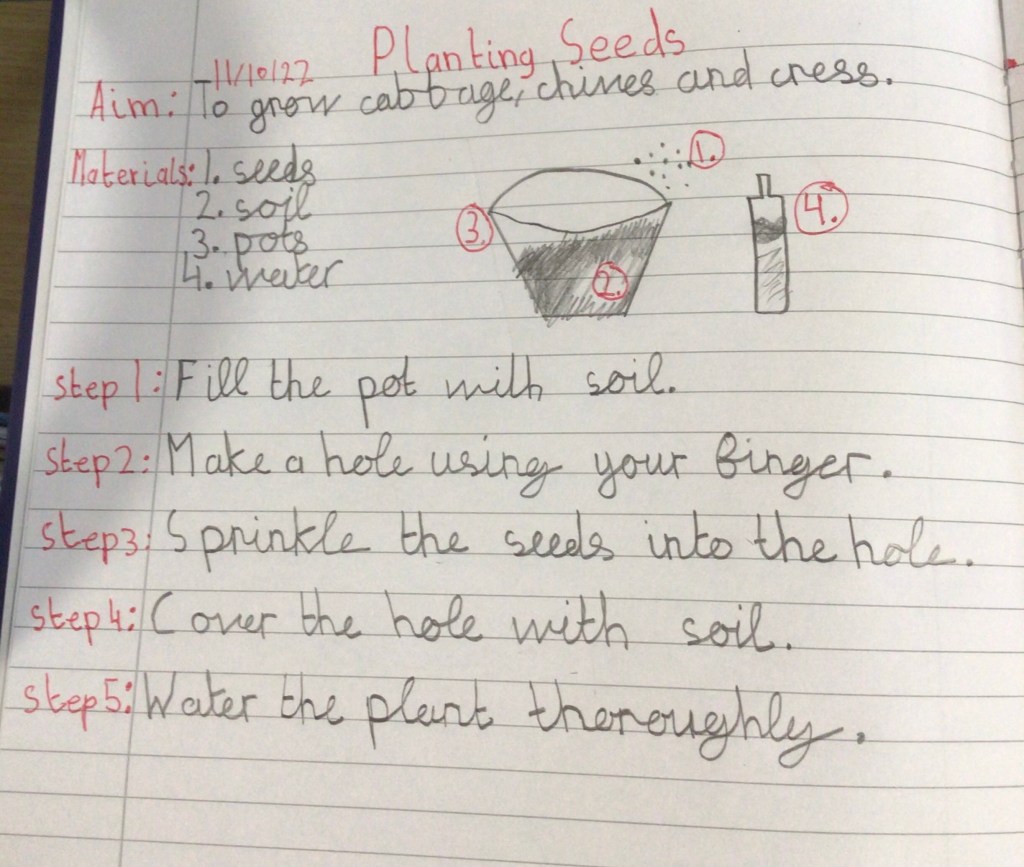 Planting Seeds
11/10/22
Aim: To grow cabbage, chives and cress.
Materials: 1. seeds
2. soil
3. pots
4. water
1.
3.
2.
4.
Step 1: Fill the pot with soil.
Step 2: Make a hole using your finger.
Step 3: Sprinkle the seeds into the hole.
Step 4: Cover the hole with soil.
Step 5: Water the plant thoroughly.